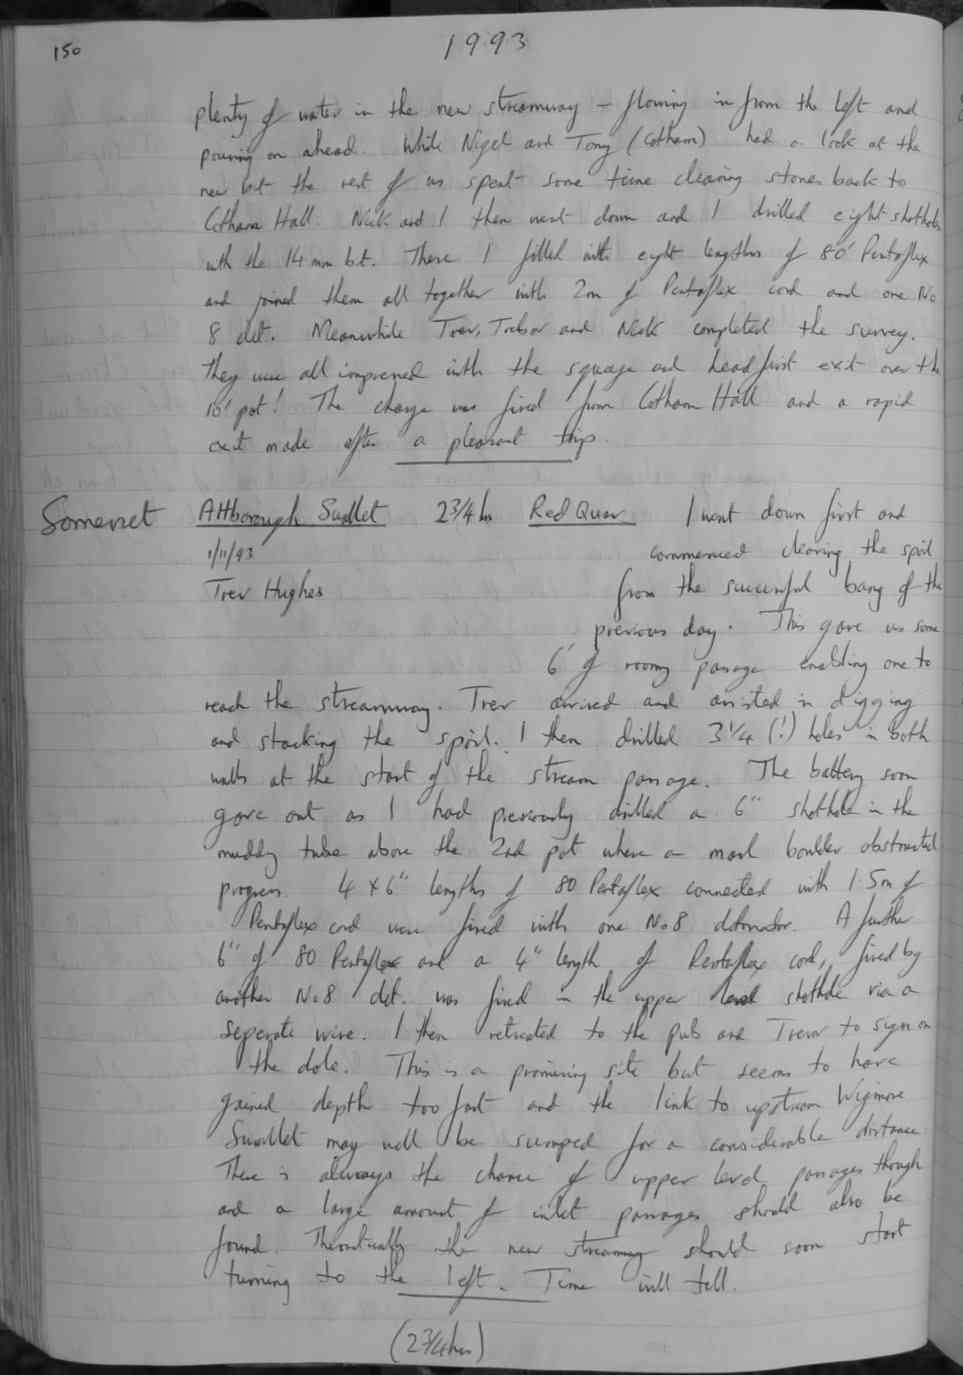 150
1993
plenty of water in the new streamway – flowing in from the left and
pouring on ahead. While Nigel and Tony (Cotham) had a look at the
new bit the rest of us spent some time clearing stones back to
Cotham Hall. Nick and I then went down and I drilled eight shotholes
with the 14 mm bit. These I filled with eight lengths of 80' Pentaflex
and joined them all together with 2m of Pentaflex cord and one No
8 det. Meanwhile Trev, Trebor and Nick completed the survey.
They were all impressed with the squeeze and head first exit over the
10' pot! The charge was fired from Cotham Hall and a rapid
exit made after a pleasant trip.
Somerset Attborough Swallet 2 3/4 hrs Red Quar I went down first and
1/11/93 commenced clearing the spoil
Trev Hughes from the successful bang of the
previous day. This gave us some
6' of roomy passage enabling one to
reach the streamway. Trev arrived and assisted in digging
and stacking the spoil. I then drilled 3 1/4 (!) holes in both
walls at the start of the stream passage. The battery soon
gave out as I had previously drilled a 6" shothole in the
muddy tube above the 2nd pot where a marl boulder obstructed
progress. 4 x 6" lengths of 80 Pentaflex connected with 1.5m of
Pentaflex cord were fired with one No 8 detonator. A further
6" of 80 Pentaflex and a 4" length of Pentaflex cord, fired by
another No 8 det. was fired in the upper level shothole via a
seperate wire. I then retreated to the pub and Trevor to sign on
the dole. This is a promising site but seems to have
gained depth too fast and the link to upstream Wigmore
Swallet may well be sumped for a considerable distance.
There is always the chance of upper level passages though
and a large amount of inlet passages should also be
found. Theoretically the new streamway should soon start
turning to the left. Time will tell.
(2 3/4 hrs)